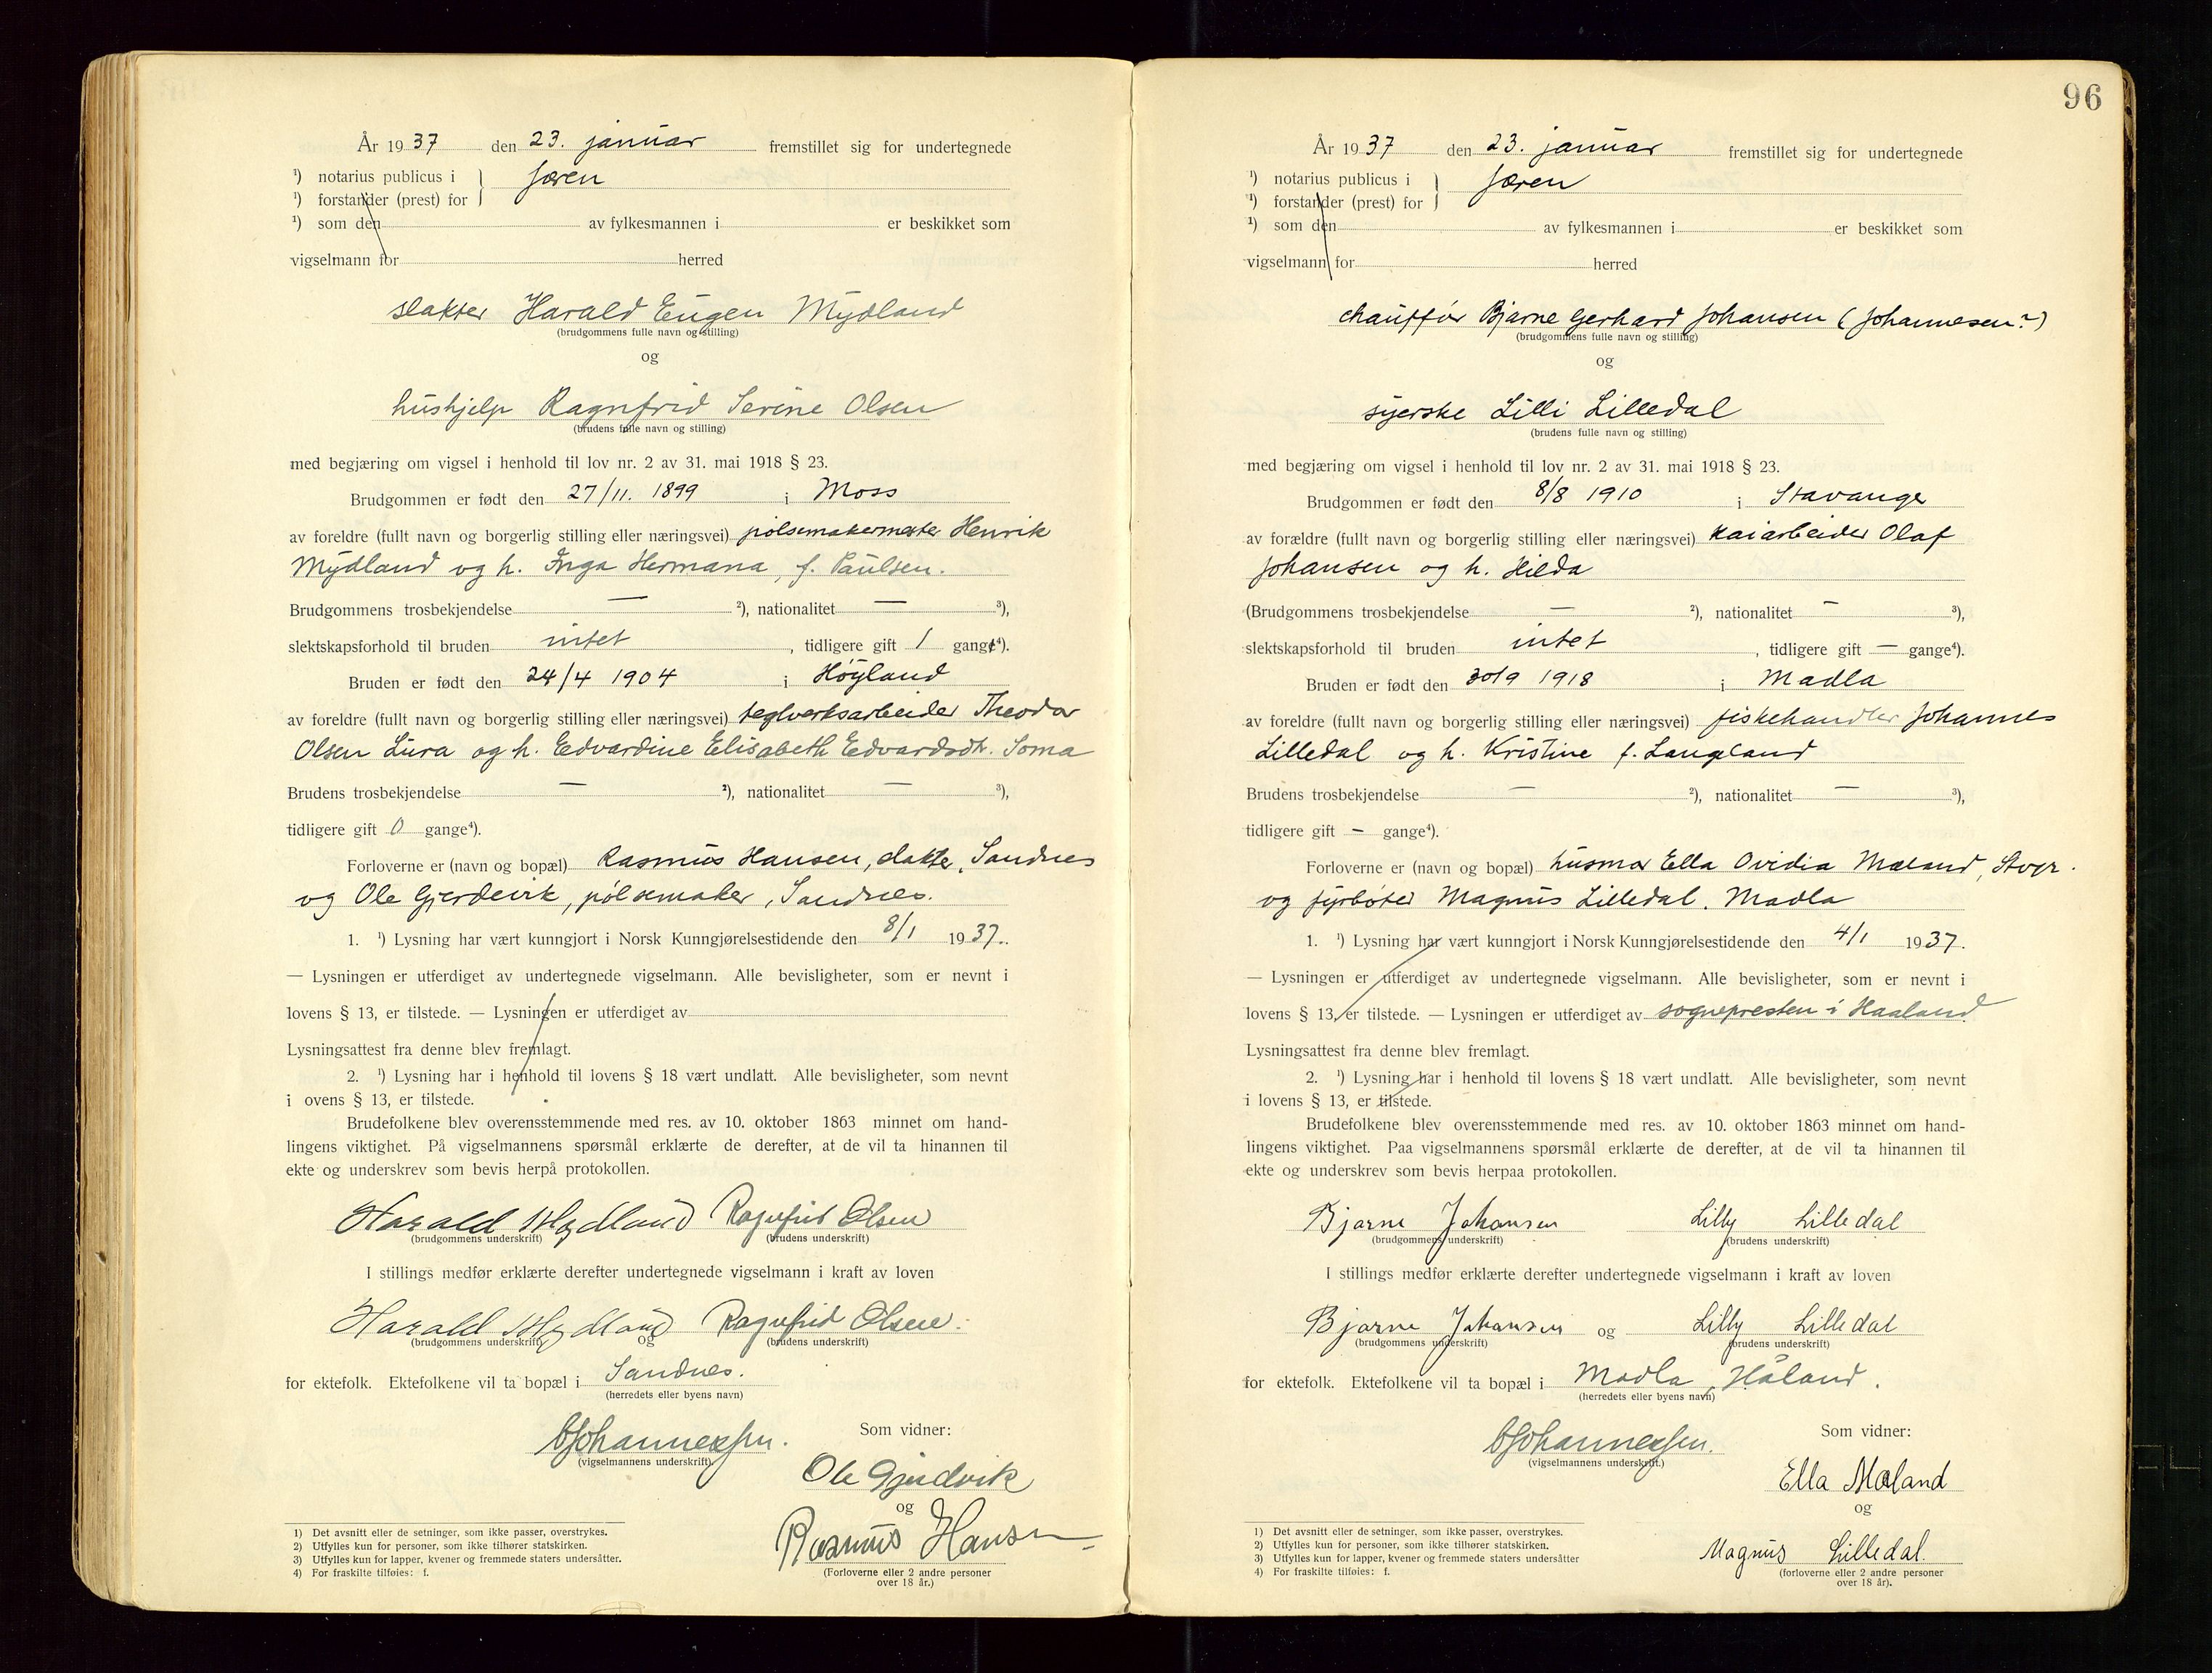 År 1937 den 23. januar fremstillet sig for undertegnede
¹) notarius publicus i } Jæren
¹) forstander (prest) for
¹) som den av fylkesmannen i er beskikket som
vigselmann for herred
slakter Harald Eugen Mydland
(brudgommens fulle navn og stilling)
og
hushjelp Ragnfrid Serine Olsen
(brudens fulle navn og stilling)
med begjæring om vigsel i henhold til lov nr. 2 av 31. mai 1918 § 23.
Brudgommen er født den 27/11. 1899 i Moss
av foreldre (fullt navn og borgerlig stilling eller næringsvei) pølsemakermester Henrik
Mydland og h. Inga Hermana, f. Paulsen.
Brudgommens trosbekjendelse — ²), nationalitet — ³),
slektskapsforhold til bruden intet, tidligere gift 1 gange⁴).
Bruden er født den 24/4 1904 i Høyland
av foreldre (fullt navn og borgerlig stilling eller næringsvei) teglverksarbeider Theodor
Olsen Lura og h. Edvardine Elisabeth Edvardsdtr. Soma
Brudens trosbekjendelse — ²), nationalitet — ³),
tidligere gift 0 gange⁴).
Forloverne er (navn og bopæl) Rasmus Hansen, slakter, Sandnes
og Ole Gjerdevik, pølsemaker, Sandnes.
1. ¹) Lysning har vært kunngjort i Norsk Kunngjørelsestidende den 8/1 1937.
— Lysningen er utferdiget av undertegnede vigselmann. Alle bevisligheter, som er nevnt i
lovens § 13, er tilstede. — Lysningen er utferdiget av
Lysningsattest fra denne blev fremlagt.
2. ¹) Lysning har i henhold til lovens § 18 vært undlatt. Alle bevisligheter, som nevnt
i ovens § 13, er tilstede.
Brudefolkene blev overensstemmende med res. av 10. oktober 1863 minnet om hand-
lingens viktighet. På vigselmannens spørsmål erklærte de derefter, at de vil ta hinannen til
ekte og underskrev som bevis herpå protokollen.
Harald Mydland Ragnfrid Olsen
(brudgommens underskrift) (brudens underskrift)
I stillings medfør erklærte derefter undertegnede vigselmann i kraft av loven
Harald Mydland og Ragnfrid Olsen.
(brudgommens underskrift) (brudens underskrift)
for ektefolk. Ektefolkene vil ta bopæl i Sandnes.
(herredets eller byens navn)
Johannessen.
(vigselmannens underskrift)
Som vidner:
Ole Gjerdevik
og
Rasmus Hansen
(Forloverne eller 2 andre personer
over 18 år.)
1) Det avsnitt eller de setninger, som ikke passer, overstrykes.
2) Utfylles kun for personer, som ikke tilhører statskirken.
3) Utfylles kun for lapper, kvener og fremmede staters undersåtter.
4) For fraskilte tilføies: f.
96
År 1937 den 23. januar fremstillet sig for undertegnede
¹) notarius publicus i } Jæren
¹) forstander (prest) for
¹) som den av fylkesmannen i er beskikket som
vigselmann for herred
chauffør Bjarne Gerhard Johansen (Johannesen?)
(brudgommens fulle navn og stilling)
og
syerske Lilli Lilledal
(brudens fulle navn og stilling)
med begjæring om vigsel i henhold til lov nr. 2 av 31. mai 1918 § 23.
Brudgommen er født den 8/8 1910 i Stavanger
av forældre (fullt navn og borgerlig stilling eller næringsvei) kaiarbeider Olaf
Johansen og h. Hilda
(Brudgommens trosbekjendelse — ²), nationalitet — ³),
slektskapsforhold til bruden intet, tidligere gift — gange⁴).
Bruden er født den 30/9 1918 i Madla
av foreldre (fullt navn og borgerlig stilling eller næringsvei) fiskehandler Johannes
Lilledal og h. Kristine f. Langeland
Brudens trosbekjendelse — ²), nationalitet — ³),
tidligere gift — gange⁴).
Forloverne er (navn og bopæl) husmor Ella Ovidia Mæland, Stvgr.
og fyrbøter Magnus Lilledal, Madla
1. ¹) Lysning har vært kunngjort i Norsk Kunngjørelsestidende den 4/1 1937.
— Lysningen er utferdiget av undertegnede vigselmann. Alle bevisligheter, som er nevnt i
lovens § 13, er tilstede. — Lysningen er utferdiget av sognepresten i Haaland
Lysningsattest fra denne blev fremlagt.
2. ¹) Lysning har i henhold til lovens § 18 vært undlatt. Alle bevisligheter, som nevnt
i lovens § 13, er tilstede.
Brudefolkene blev overensstemmende med res. av 10. oktober 1863 minnet om hand-
lingens viktighet. Paa vigselmannens spørsmål erklærte de derefter, at de vil ta hinannen til
ekte og underskrev som bevis herpaa protokollen.
Bjarne Johansen Lilly Lilledal
(brudgommens underskrift) (brudens underskrift)
I stillings medfør erklærte derefter undertegnede vigselmann i kraft av loven
Bjarne Johansen og Lilly Lilledal
(brudgommens underskrift) (brudens underskrift)
for ektefolk. Ektefolkene vil ta bopæl i Madla, Håland.
(herredets eller byens navn)
Johannessen.
(vigselmannens underskrift.)
Som vidner:
Ella Mæland
og
Magnus Lilledal.
(forloverne eller 2 andre personer
over 18 år).
1) Det avsnitt eller de setninger, som ikke passer, overstrykes.
2) Utfylles kun for personer, som ikke tilhører statskirken.
3) Utfylles kun for lapper, kvener og fremmede staters undersåtter
4) For fraskilte tilføies: f.